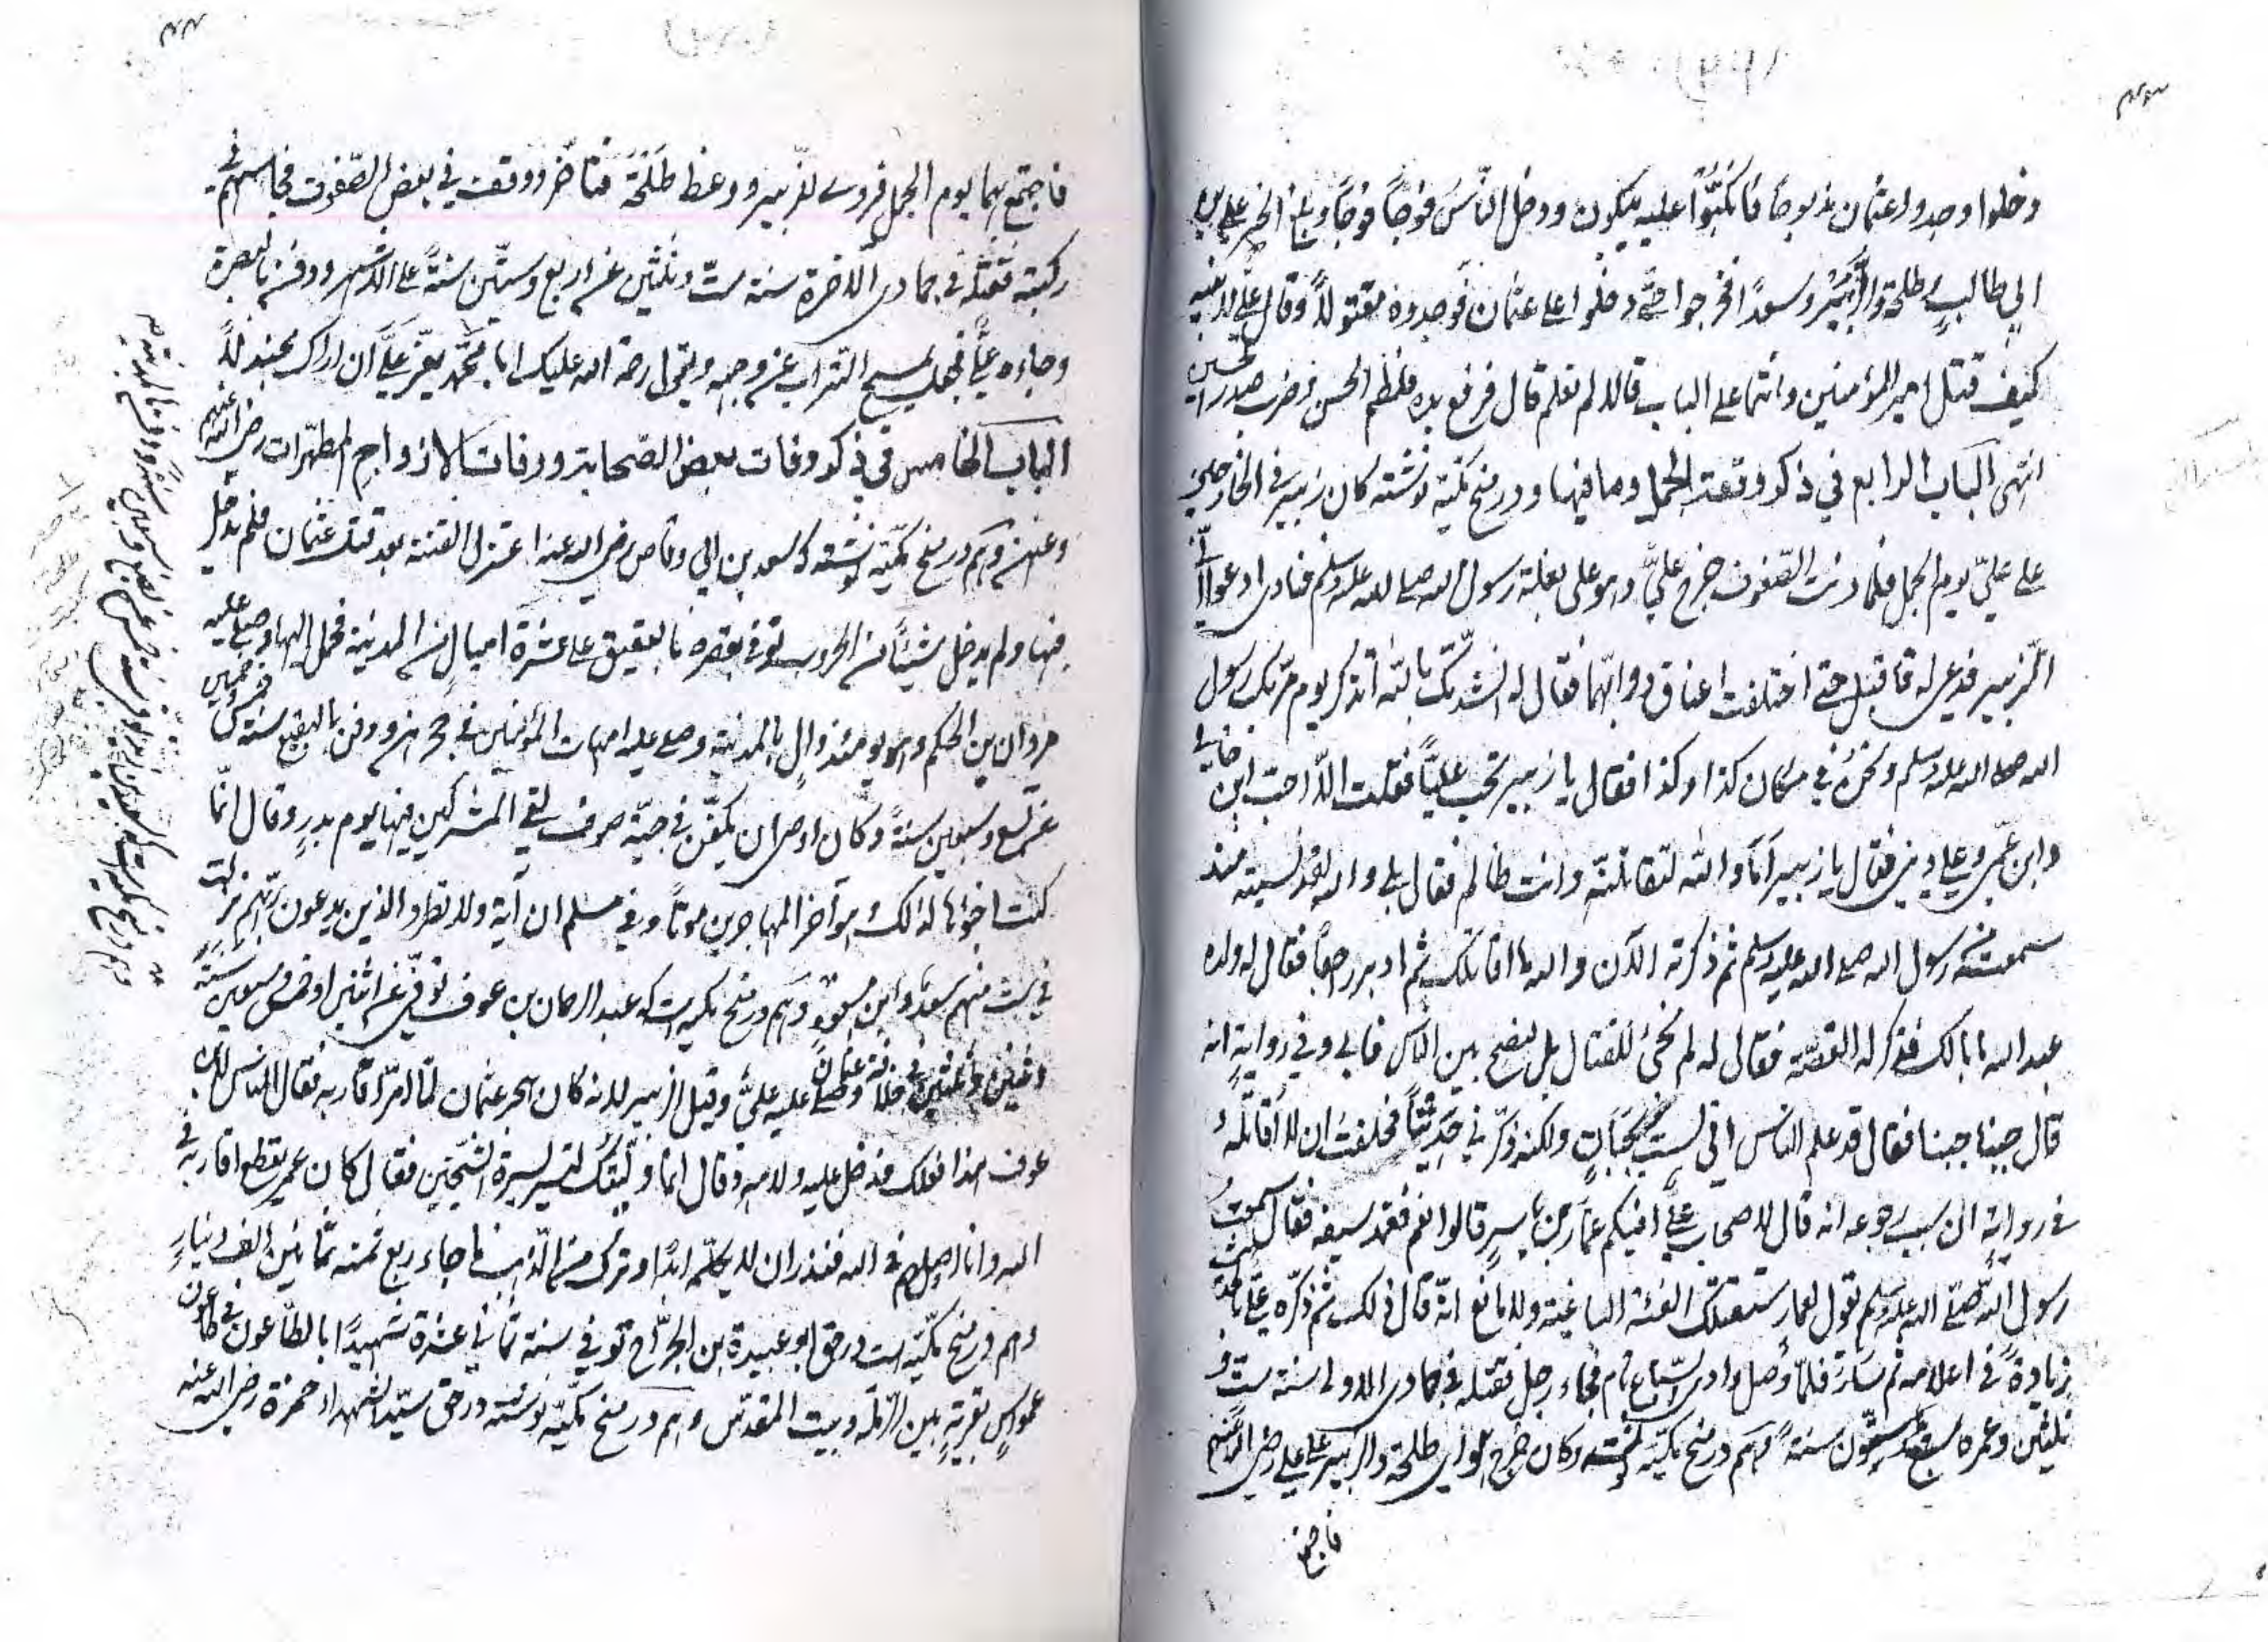 دخلوا وجدوا عثمان مذبوحا فاكبّوا عليه يبكون ودخل النّاس فوجاً فوجاً وبلغ الخبر علي بن
ابي طالب وطلحة والزّبير وسعدًا فخرجوا حتّى دخلوا على عثمان فوجدوه مقتولاً وقال علي لابنيه
كيف قتل امير المؤمنين وانتما على الباب قالا لم نعلم قال فرفع يده فلطم الحسن وضرب صدر الحسين
انتهى الباب الرابع في ذكر وقعة الجمل وما فيها ودر منح مكّيّة نوشته كان زبير
على عليّ يوم الجمل فلما دنت الصّفوف خرج عليّ وهو على بغلة رسول الله صلى الله عليه وسلم فنادى ادعوا لي
الزّبير فدعي له فاقبل حتى اختلفت اعناق دوابّهما فقال له انشدتك بالله اتذكر يوم مرّ بك رسول
الله صلى الله عليه وسلم ونحن في مكان كذا وكذا فقال يا زبير تحب عليّاً فقلت الا احب ابن خالي
وابن عمّي وعلى ديني فقال يا زبير اما والله لتقاتلنّه وانت ظالم فقال بلى والله لقد نسيته منذ
سمعته من رسول الله صلى الله عليه وسلم ثم ذكرته الآن والله لا اقاتلك ثم ادبر راجعاً فقال له ولده
عبد الله ما لك فذكر له القصّة فقال له لم تجئ للقتال بل لتصلح بين الناس فابى وفي رواية انه
قال جبنا جبنا فقال قد علم الناس اني لست بجبان ولكنه ذكّرني حديثاً فحلفت ان لا اقاتله
في رواية ان سبب رجوعه انه قال لاصحاب علي افيكم عمّار بن ياسر قالوا نعم فغمد سيفه فقال سمعت
رسول الله صلّى الله عليه وسلم يقول لعمار ستقتلك الفئة الباغية ولا مانع انّه قال ذلك ثم ذكّره علي بالحديث
زيادة في اعلامه ثم سار فلمّا وصل وادي السّباع نام فجاء رجل فقتله في جمادى الاولى سنة ستّ و
ثلثين وعمره سبع وستّون سنة وهم در منح مكّيّة نوشته وكان خرج طلحة والزبير على علي رضي الله عنهم
فاجتمع
فاجتمع بهما يوم الجمل فروى للزبير ووعظ طلحة فتأخّر ووقف في بعض الصّفوف فجاء سهم في
ركبته فقتله في جمادى الاخرة سنة ستّ وثلثين عن اربع وستّين سنةً على الاشهر ودفن بالبصرة
وجاءه عليّ فجعل يمسح التراب عن وجهه ويقول رحمة الله عليك ابا محمّد يعزّ عليّ ان اراك مجندلاً
الباب الخامس في ذكر وفات بعض الصّحابة ووفات الازواج المطهّرات رضي الله عنهم
وعنهنّ وهم در منح مكّيّه نوشته كه سعد بن ابي وقاص رضي الله عنه اعتزل الفتنة بعد قتل عثمان فلم يدخل
فيها ولم يدخل شيئاً من الحروب توفي بقصره بالعقيق على عشرة اميال من المدينة فحمل اليها وصلى عليه
مروان بن الحكم وهو يومئذ والٍ بالمدينة وصلى عليه امهات المؤمنين في حجرهن ودفن بالبقيع سنة خمس وخمسين
عن تسع وسبعين سنةً وكان اوصى ان يكفّن في جبّة صوف لقي المشركين فيها يوم بدر وقال انّما
كنت لذلك وهو آخر المهاجرين موتاً وفي مسلم ان آية ولا تطرد الذين يدعون ربّهم نزلت
في ستّ منهم سعد وابن مسعود وهم در منح مكيه است كه عبد الرحمان بن عوف توفّي عن اثنين او خمس وسبعين سنةً
وثلثين في خلافة عثمان وصلّى عليه عليّ وقيل الزبير لانه كان هجر عثمان لمّا امّر اقاربه فقال الناس لابن
عوف هذا فعلك فدخل عليه ولامه وقال انما وليتك لتسير بسيرة الشيخين فقال كان عمر يقطع اقاربه في
الله وانا اصلهم في الله فنذر ان لا يكلّمه ابدًا وترك من الذهب ما جاء ربع ثمنه ثمانين الف دينار
وهم در منح مكّيّه است در حق ابو عبيدة بن الجرّاح توفي سنة ثماني عشرة شهيدًا بالطّاعون في طاعون
عمواس بقرية بين الرّملة وبيت المقدّس وهم در منح مكّيّه نوشته در حق سيّد الشهداء حمزة رضي الله عنه